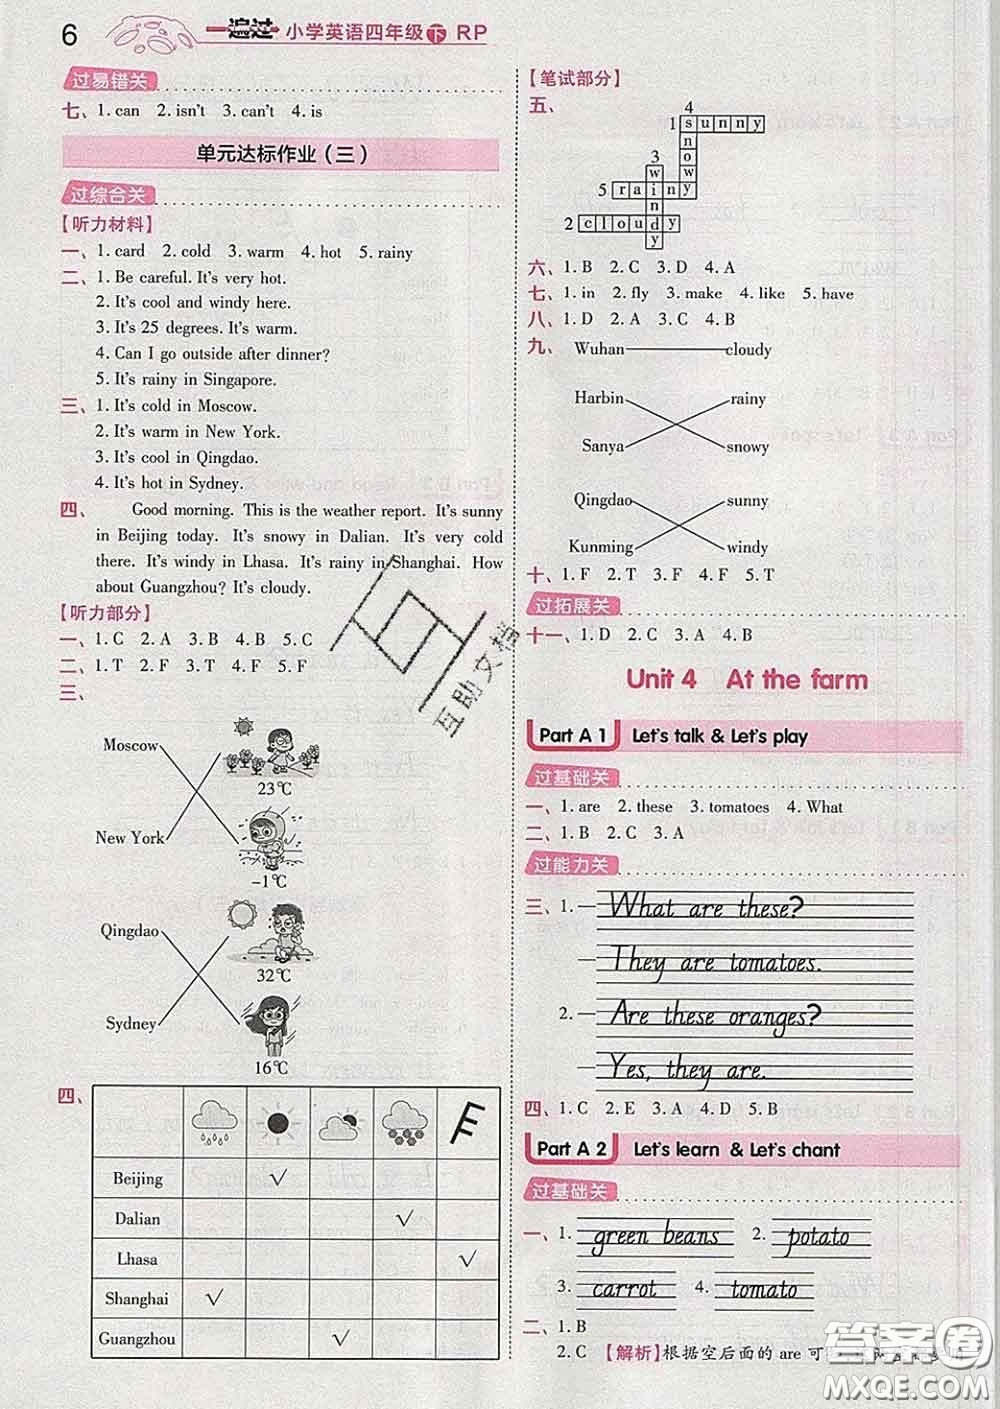 6 一遍过 小学英语四年级 下 RP
过易错关
七、1. can 2. isn't 3. can't 4. is
单元达标作业（三）
过综合关
【听力材料】
一、1. card 2. cold 3. warm 4. hot 5. rainy
二、1. Be careful. It's very hot.
2. It's cool and windy here.
3. It's 25 degrees. It's warm.
4. Can I go outside after dinner?
5. It's rainy in Singapore.
三、1. It's cold in Moscow.
2. It's warm in New York.
3. It's cool in Qingdao.
4. It's hot in Sydney.
四、 Good morning. This is the weather report. It's sunny
in Beijing today. It's snowy in Dalian. It's very cold
there. It's windy in Lhasa. It's rainy in Shanghai. How
about Guangzhou? It's cloudy.
【听力部分】
一、1. C 2. A 3. B 4. B 5. C
二、1. T 2. F 3. T 4. F 5. F
三、
Moscow
23℃
New York
-1℃
Qingdao
32℃
Sydney
16℃
四、
Beijing √
Dalian √
Lhasa √
Shanghai √
Guangzhou √
【笔试部分】
五、
4
1 sunny
snowy
3
windy
5 rainy
2 cloudy
六、1. B 2. C 3. D 4. A
七、1. in 2. fly 3. make 4. like 5. have
八、1. D 2. A 3. C 4. B
九、 Wuhan cloudy
Harbin rainy
Sanya snowy
Qingdao sunny
Kunming windy
十、1. F 2. T 3. F 4. F 5. T
过拓展关
十一、1. D 2. C 3. A 4. B
Unit 4 At the farm
Part A 1 Let's talk & Let's play
过基础关
一、1. are 2. these 3. tomatoes 4. What
二、1. B 2. C 3. A
过能力关
三、1. — What are these?
— They are tomatoes.
2. — Are these oranges?
— Yes, they are.
四、1. C 2. E 3. A 4. D 5. B
Part A 2 Let's learn & Let's chant
过基础关
一、1. green beans 2. potato
3. carrot 4. tomato
二、1. B
2. C 【解析】根据空后面的 are 可
互助文档
答案圈
MXQE.COM